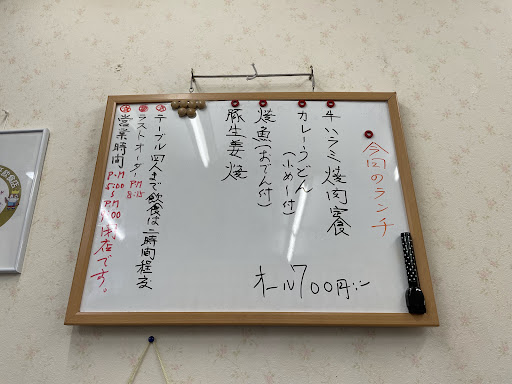 今回のランチ
牛ハラミ焼肉定食
カレーうどん
(小めし付)
焼魚(おでん付)
豚生姜焼
オール700円
テーブル四人まで飲食は二時間程度
ラストオーダーPM 8:15
営業時間 P.M 5:00 P.M :00 閉店です。